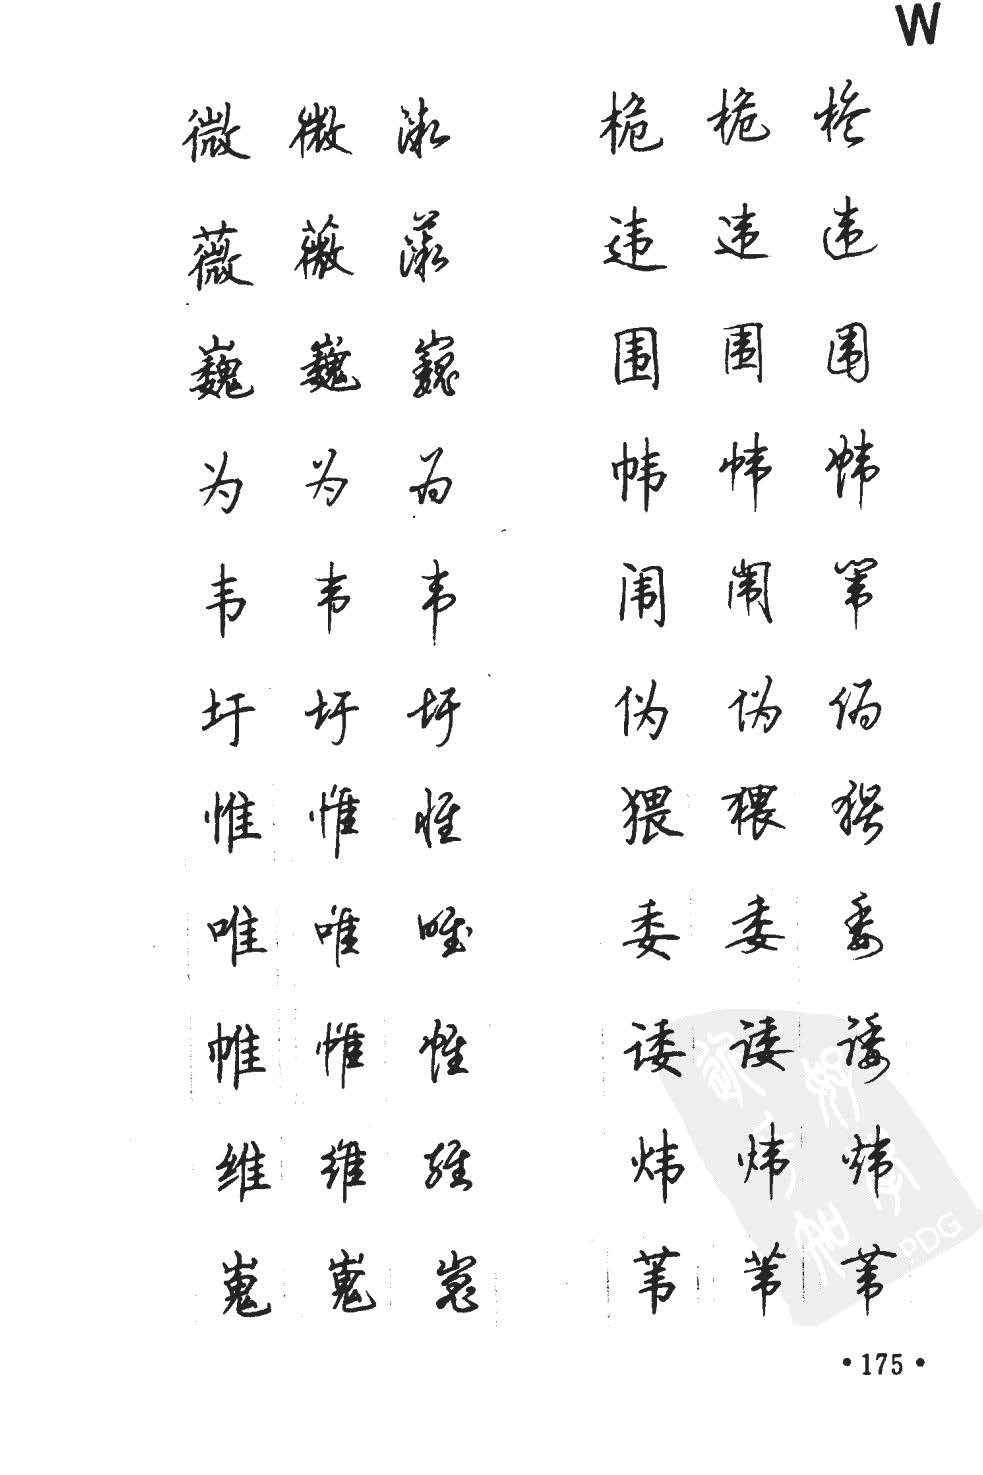 W
微 微 微 桅 桅 桅
薇 薇 薇 违 违 违
巍 巍 巍 围 围 围
为 为 为 帏 帏 帏
韦 韦 韦 闱 闱 闱
圩 圩 圩 伪 伪 伪
惟 惟 惟 猥 猥 猥
唯 唯 唯 委 委 委
帷 帷 帷 诿 诿 诿
维 维 维 炜 炜 炜
嵬 嵬 嵬 苇 苇 苇
PDG
•175•